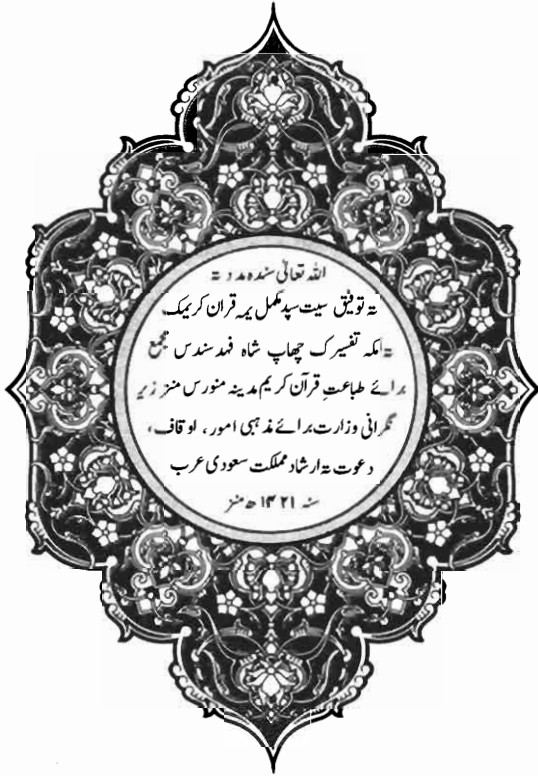 اللہ تعالیٰ سندہ مدد تہ
تہ توفیق سیت سپد مکمل یمہ قران کریمک
تہ امکہ تفسیرک چھاپ شاہ فہد سندس مجمع
برائے طباعتِ قرآن کریم مدینہ منورس منز زیر
نگرانی وزارت برائے مذہبی امور، اوقاف،
دعوت تہ ارشاد مملکت سعودی عرب
سنہ ۱۴۲۱ھ منز